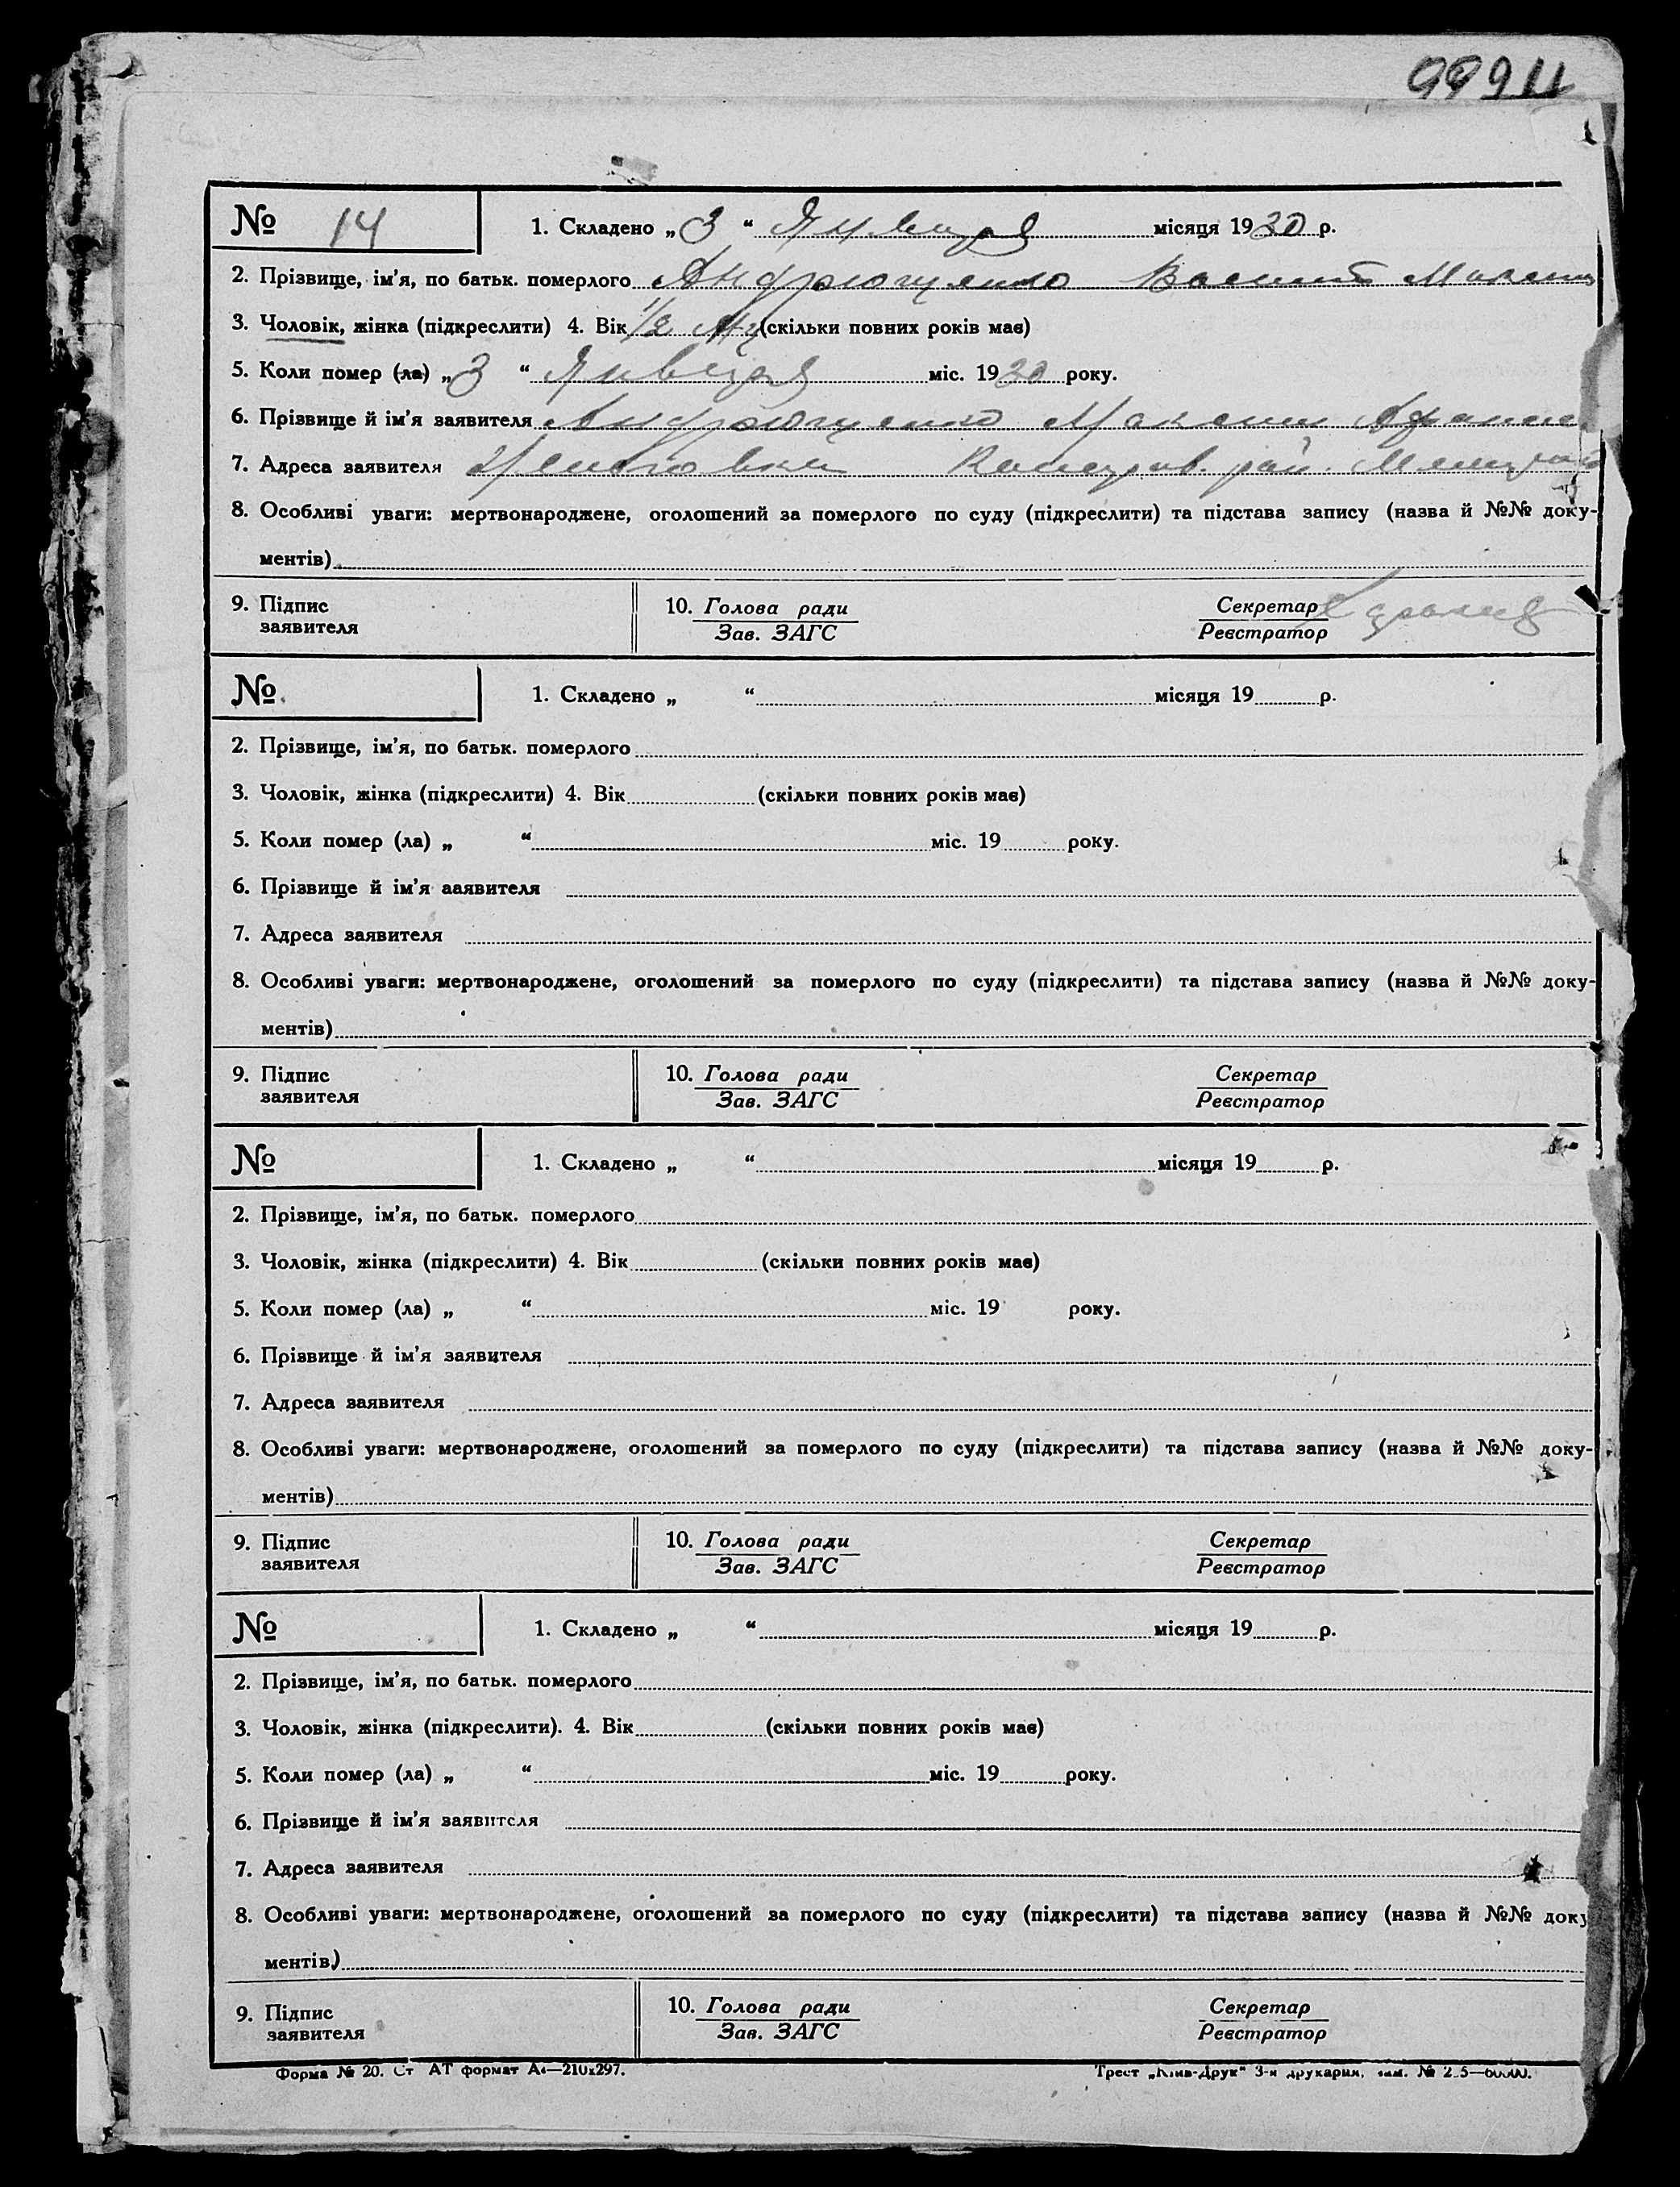 № 14 1. Складено „ 3 “ Января місяця 1930 р.
2. Прізвище, ім’я, по батьк. померлого Андрющенко Василь
3. Чоловік, жінка (підкреслити) 4. Вік 1/2 (скільки повних років має)
5. Коли помер (ла) „ 3 “ Января міс. 1930 року.
6. Прізвище й ім’я заявителя Андрющенко Максим
7. Адреса заявителя рай.
8. Особливі уваги: мертвонароджене, оголошений за померлого по суду (підкреслити) та підстава запису (назва й №№ доку-
ментів)
9. Підпис заявителя 10. Голова ради Секретар
Зав. ЗАГС Реєстратор
№ 1. Складено „ “ місяця 19 р.
2. Прізвище, ім’я, по батьк. померлого
3. Чоловік, жінка (підкреслити) 4. Вік (скільки повних років має)
5. Коли помер (ла) „ “ міс. 19 року.
6. Прізвище й ім’я ааявителя
7. Адреса заявителя
8. Особливі уваги: мертвонароджене, оголошений за померлого по суду (підкреслити) та підстава запису (назва й №№ доку-
ментів)
9. Підпис заявителя 10. Голова ради Секретар
Зав. ЗАГС Реєстратор
№ 1. Складено „ “ місяця 19 р.
2. Прізвище, ім’я, по батьк. померлого
3. Чоловік, жінка (підкреслити) 4. Вік (скільки повних років має)
5. Коли помер (ла) „ “ міс. 19 року.
6. Прізвище й ім’я заявителя
7. Адреса заявителя
8. Особливі уваги: мертвонароджене, оголошений за померлого по суду (підкреслити) та підстава запису (назва й №№ доку-
ментів)
9. Підпис заявителя 10. Голова ради Секретар
Зав. ЗАГС Реєстратор
№ 1. Складено „ “ місяця 19 р.
2. Прізвище, ім’я, по батьк. померлого
3. Чоловік, жінка (підкреслити). 4. Вік (скільки повних років має)
5. Коли помер (ла) „ “ міс. 19 року.
6. Прізвище й ім’я заявителя
7. Адреса заявителя
8. Особливі уваги: мертвонароджене, оголошений за померлого по суду (підкреслити) та підстава запису (назва й №№ доку
ментів)
9. Підпис заявителя 10. Голова ради Секретар
Зав. ЗАГС Реєстратор
Форма № 20. Ст АТ формат А4—210х297. Трест „Київ-Друк“ 3-я друкарня,